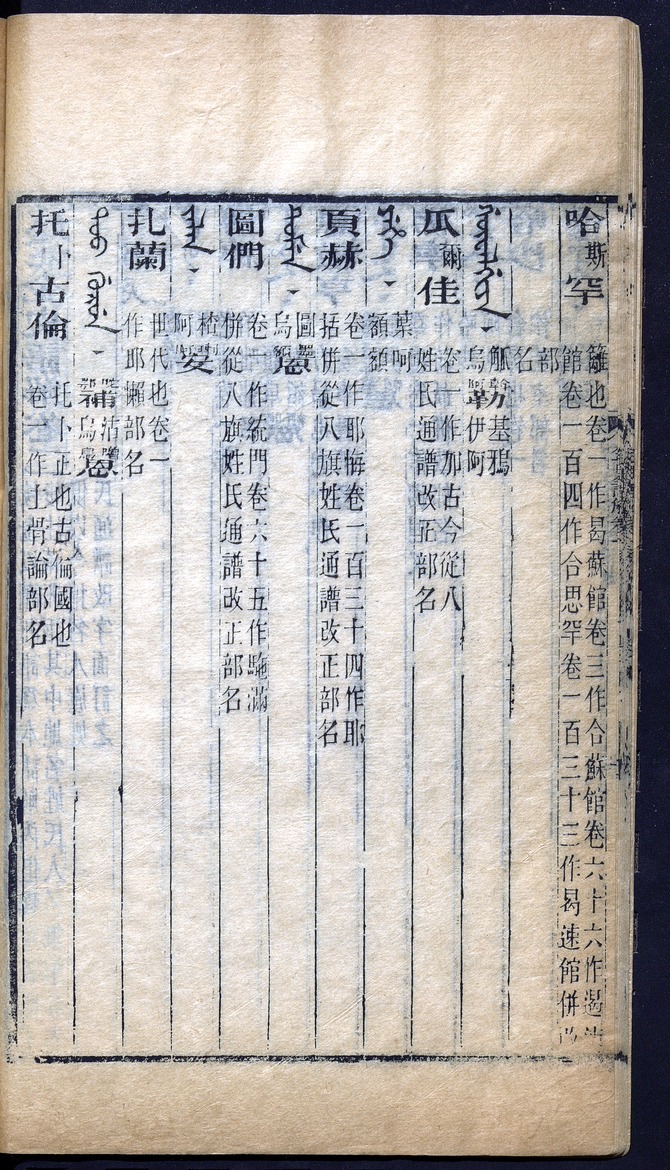 哈斯罕
籬也卷一作曷蘇館卷三作合蘇館卷六十六作遏
館卷一百四作合思罕卷一百三十三作曷速館併
部
名
ᡤᡡᠸᠠᠯᡤᡳᠶᠠ
觚基鴉
烏勒伊阿
瓜爾佳
卷一作加古今從八
姓氏通譜改正部名
ᠶᡝᡥᡝ
葉呵
額額
頁赫
卷一作耶悔卷一百三十四作耶
括併從八旗姓氏通譜改正部名
ᡨᡠᠮᡝᠨ
圖
烏
圖們
卷一作統門卷六十五作駞滿
併從八旗姓氏通譜改正部名
ᠵᠠᠯᠠᠨ
楂
阿
扎蘭
世代也卷一
作耶懶部名
沽
補烏
托卜古倫
托卜正也古倫國也
卷一作土骨論部名